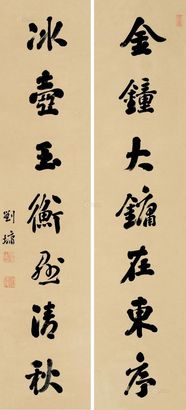 金鐘大鏞在東序
冰壺玉衡懸清秋
劉墉